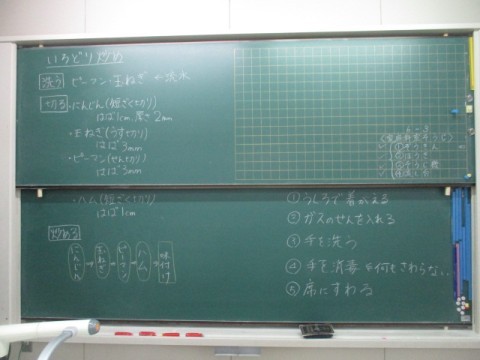 いろどり炒め
洗う ピーマン・玉ねぎ
切る ・にんじん(短ざく切り)
はば1cm、厚さ2mm
・玉ねぎ(うす切り)
はば3mm
・ピーマン(せん切り)
はば3mm
・ハム(短ざく切り)
はば1cm
炒める
にんじん→玉ねぎ→ピーマン→ハム→味付け
①うしろで着がえる
②ガスのせんを入れる
③手を洗う
④手を消毒 何もさわらない..
⑤席にすわる